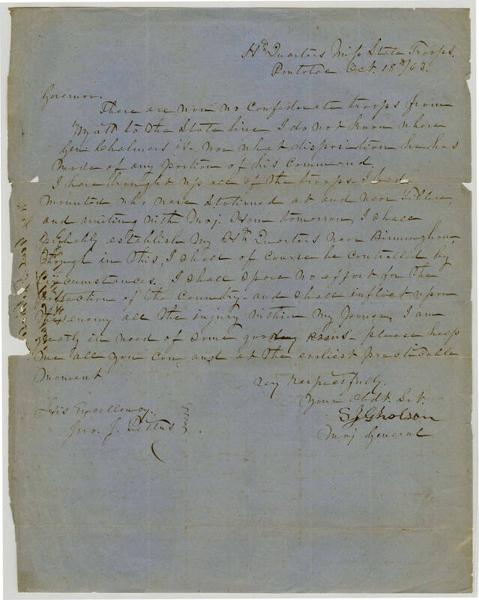 Hd Quarters Miss State Troops
Pontotoc Oct. 18th/63.
Governor.
There are now no Confederate troops from
to the State line I do not know where
Genl Chalmers is nor what disposition he has
made of any portion of his Command,
I have brought up all of the troops I had
mounted who were stationed at and near
and uniting with Maj. Ham tomorrow, I shall
establish my Hd Quarters near Birmingham,
though in this, I shall of course be controlled by
circumstances, I shall spare no effort for the
protection of the Country and shall inflict upon
the enemy all the injury within my power, I am
greatly in need of some good arms please help
me all you can and at the earliest practicable
moment
Very Respectfully
Your Obdt. Svt.
S J Gholson
Maj General
His Excellency
Jno. J. Pettus